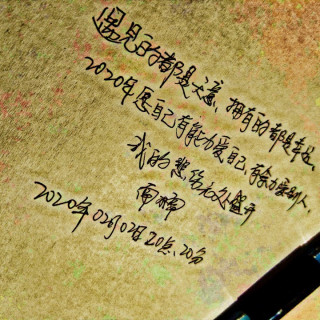 遇见的都是天意、拥有的都是幸运、
2020年愿自己有能力爱自己、有余力爱别人、
我的悲伤无处盛开
2020年02月02日20点、20分